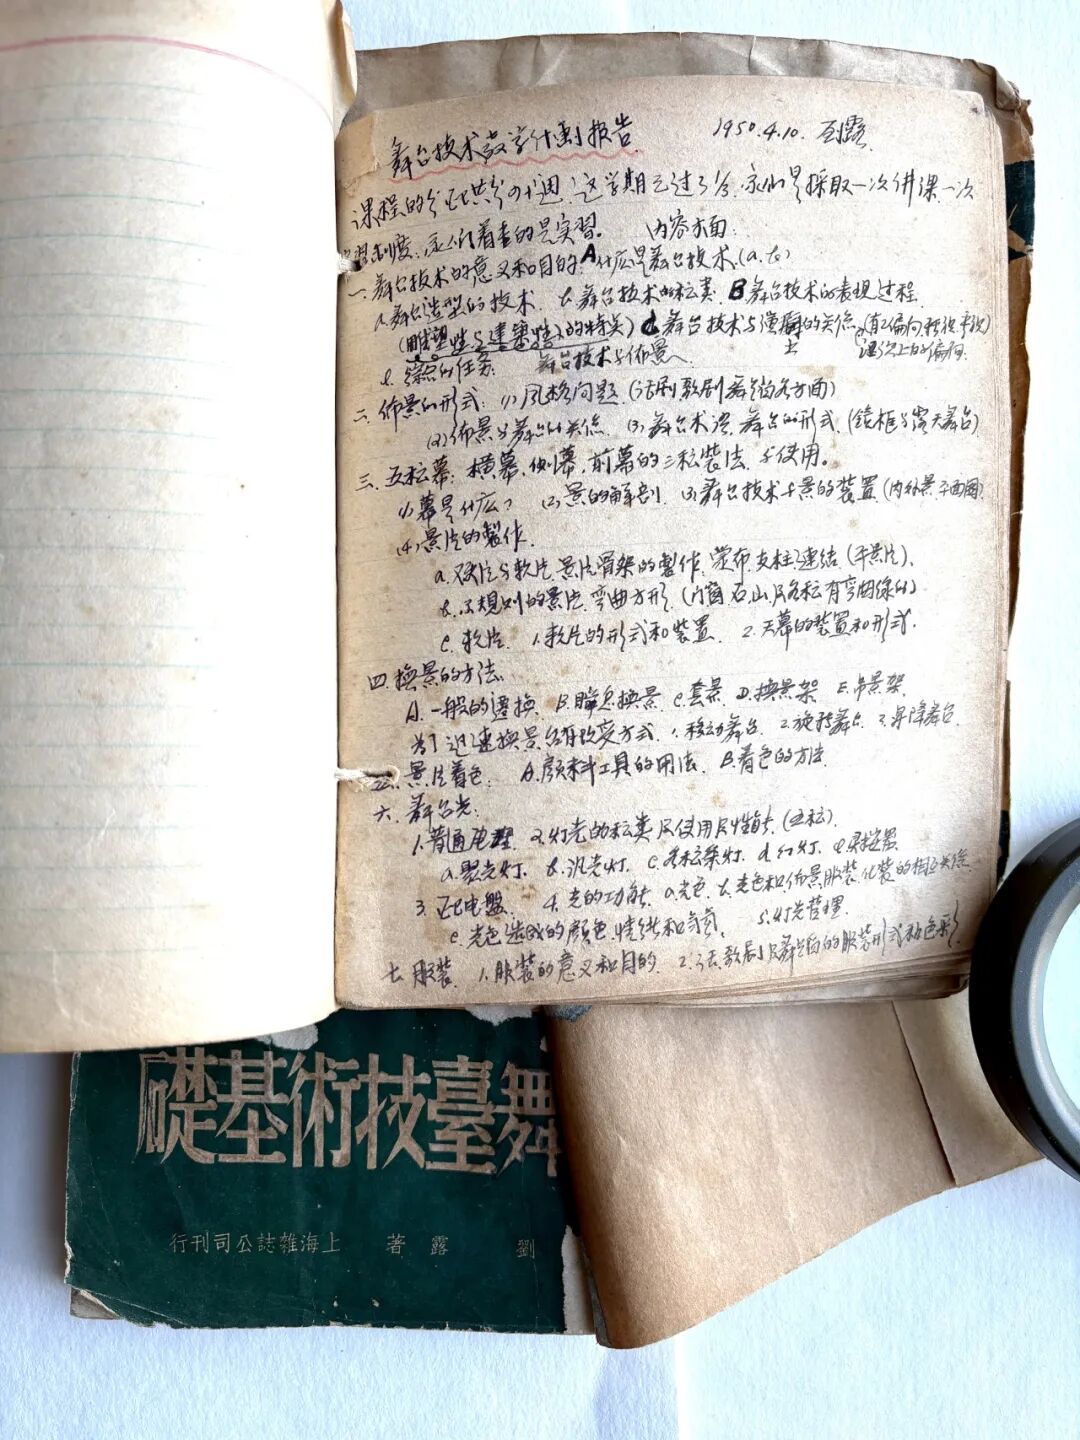 舞台技术教学计划报告 1950.4.10. 刘露
课程的分配共分廿週,这学期已过了 我们是採取一次讲课一次
习制度,我们着重的是实習。 内容方面:
一.舞台技术的意义和目的:A什么是舞台技术.(a.b)
a.舞台造型的技术. b.舞台技术的种类. B舞台技术的表现过程.
(雕塑性与建築性的特点) C舞台技术与演剧的关係
舞台技术与佈景
二.佈景的形式. (1)风格问题(话剧歌剧舞蹈各方面)
(2)佈景与舞台的关係. (3)舞台术语.舞台的形式.(镜框与露天舞台)
三.五种幕:横幕.侧幕.前幕的三种装法.与使用。
(1)幕是什么? (2)景的解剖 (3)舞台技术与景的装置.(内外景.平面图)
(4)景片的製作.
a.硬片与軟片.景片骨架的製作.蒙布.支柱.連結(平景片).
b.不规则的景片.弯曲方形.(门窗石.山及各种有弯曲线的)
c.軟片. 1.軟片的形式和装置. 2.天幕的装置和形式.
四.換景的方法.
A.一般的遷換. B.瞬息換景. C.套景. D.換景架. E.吊景架.
为了迅速換景台的改变方式. 1.移动舞台. 2.旋转舞台. 3.昇降舞台.
五.景片着色. A.顔料工具的用法. B.着色的方法.
六.舞台光:
1.普通电理. 2.灯光的种类及使用及性能.(五种).
a.聚光灯. b.汎光灯. c.各种条灯. d.幻灯.
3.配电盤. 4.光的功能. a.光色. b.光色和佈景服装.化装的相互关係.
c.光色造成的顔色.情绪和气氛. 5.灯光管理.
七.服装. 1.服装的意义和目的. 2.话.歌剧及舞蹈的服装形式和色彩.
舞臺技術基礎
劉露著 上海雜誌公司刊行